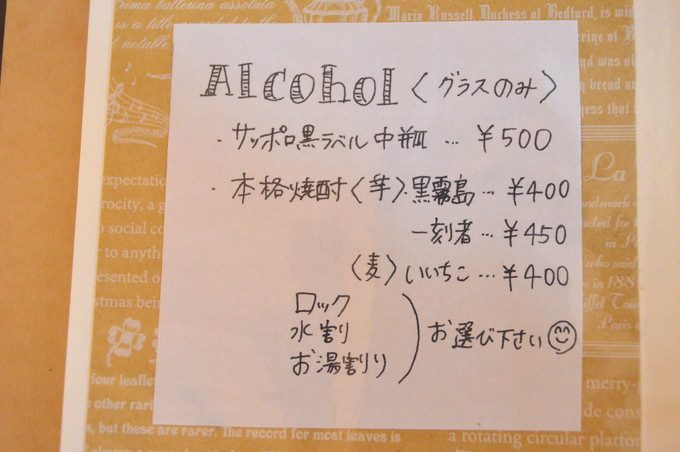 Prima ballerina assoluta
is a title
notable
Maria Russell, Duchess of Bedford, is wid
bread an
ess that
Alcohol〈グラスのみ〉
・サッポロ黒ラベル中瓶…¥500
・本格焼酎〈芋〉黒霧島…¥400
一刻者…¥450
〈麦〉いいちこ…¥400
ロック
水割り
お湯割り
お選び下さい
expectation
rocity, a g
social co
to anythin
esented o
stmas bein
La
who said
in 188
Eiffel Tow
Paris
four leaflet
other rari
s, but these are rarer. The record for most leaves is
merry-
de cons
a rotating circular platfor